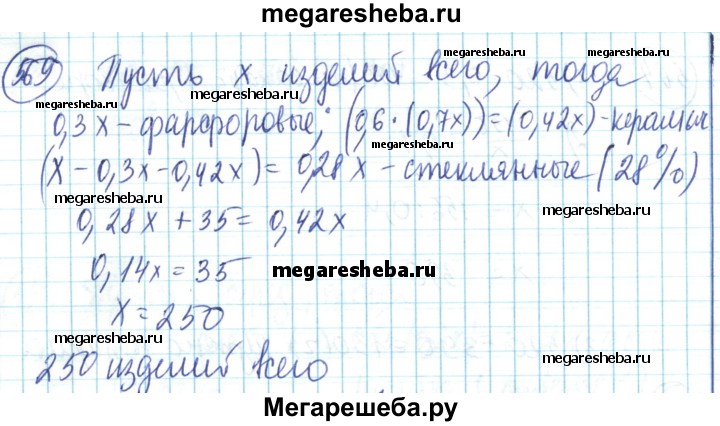 megaresheba.ru
569 Пусть x изделий всего, тогда
megaresheba.ru megaresheba.ru
0,3x – фарфоровые; (0,6·(0,7x))=(0,42x)-керамич
megaresheba.ru
(x – 0,3x – 0,42x) = 0,28x – стеклянные (28%)
megaresheba.ru megaresheba.ru
0,28x + 35 = 0,42x
0,14x = 35
megaresheba.ru
x = 250
megaresheba.ru megaresheba.ru
250 изделий всего
Мегарешеба.ру